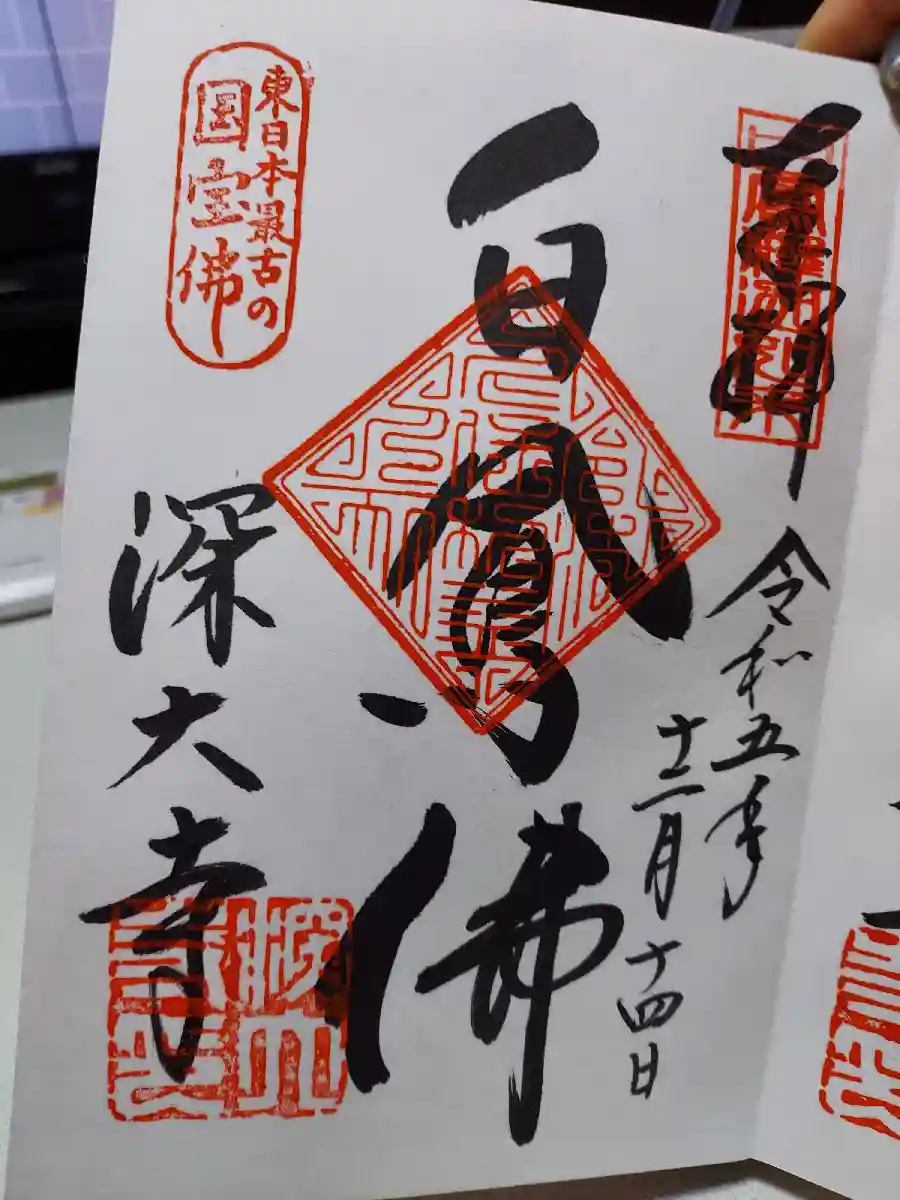 奉拝
令和五年
十二月十四日
白鳳佛
東日本最古の
国宝佛
深大寺